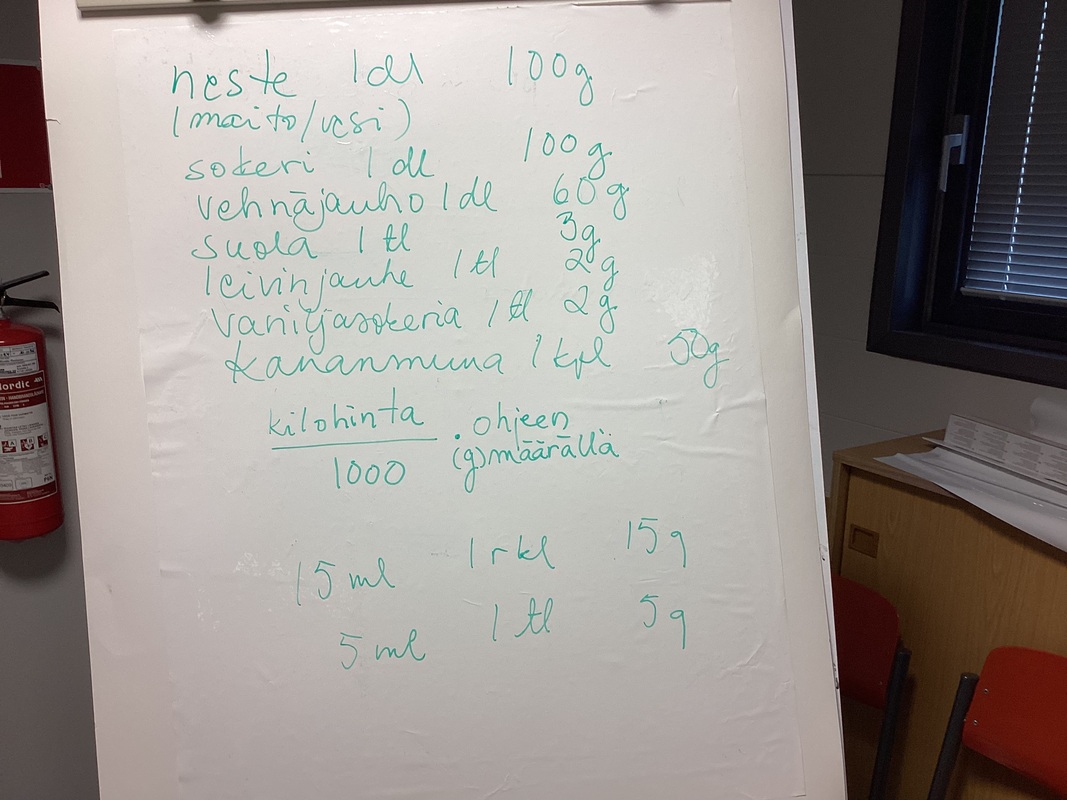 neste 1dl 100g
(maito/vesi)
sokeri 1 dl 100g
vehnäjauho 1dl 60g
suola 1 tl 3g
leivinjauhe 1 tl 2g
vaniljasokeria 1 tl 2g
kananmuna 1 kpl 50g
kilohinta
1000
. ohjeen
(g)määrällä
15 ml 1 rkl 15g
5 ml 1 tl 5g
Nordic